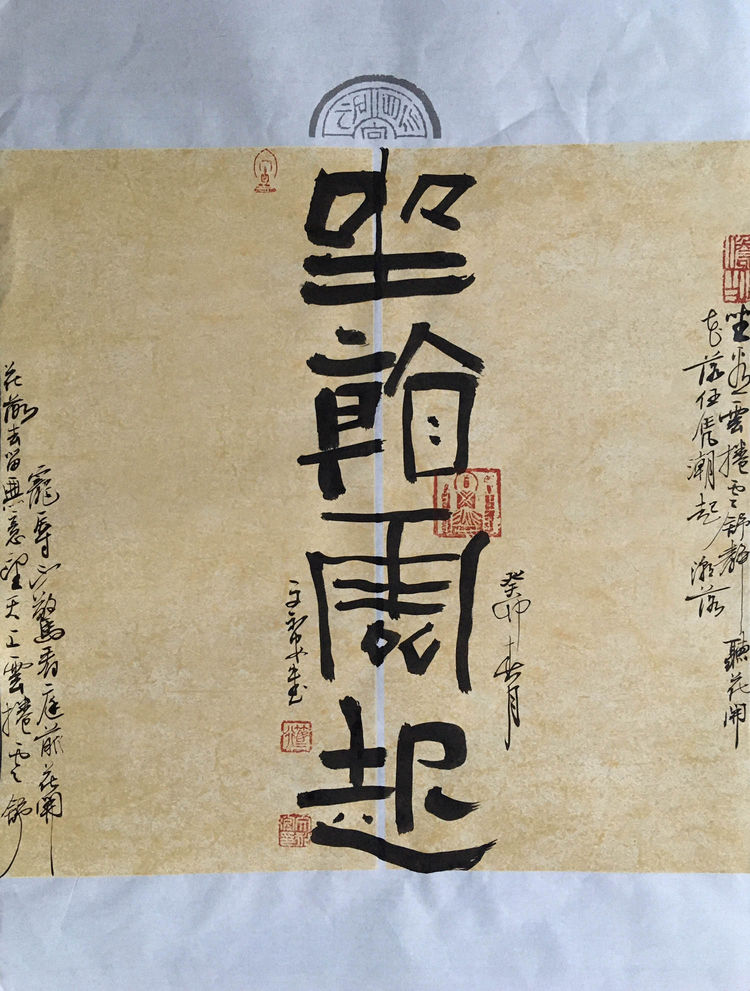 坐看雲捲云舒靜聽花開
花落任凭潮起潮落
癸卯春月
坐看雲起
寵辱不驚看庭前花開
花落去留無意望天上雲捲云舒